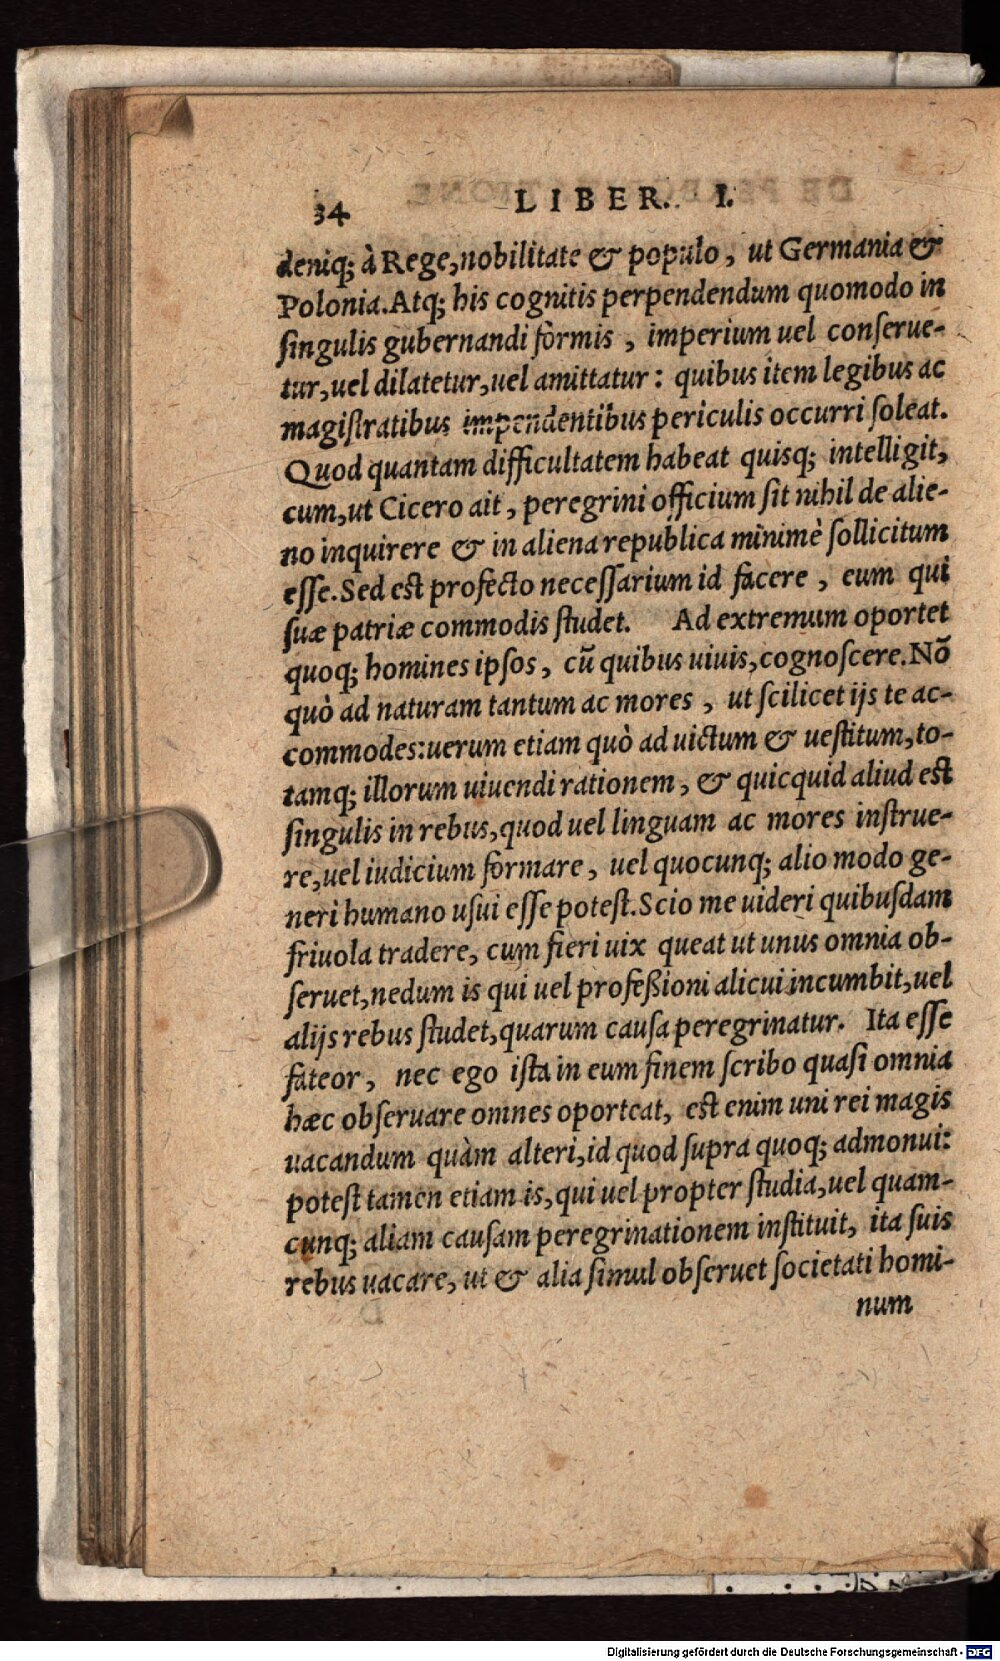 34 LIBER. I.
deniq; à Rege, nobilitate & populo, ut Germania &
Polonia. Atq; his cognitis perpendendum quomodo in
ſingulis gubernandi formis, imperium uel conſerue-
tur, uel dilatetur, uel amittatur: quibus item legibus ac
magiſtratibus impendentibus periculis occurri ſoleat.
Quod quantam difficultatem habeat quisq; intelligit,
cum, ut Cicero ait, peregrini officium ſit nihil de alie-
no inquirere & in aliena republica minimè ſollicitum
eſſe. Sed eſt profecto neceſſarium id facere, eum qui
ſuæ patriæ commodis ſtudet. Ad extremum oportet
quoq; homines ipſos, cū quibus uiuis, cognoſcere. Nō
quò ad naturam tantum ac mores, ut ſcilicet ijs te ac-
commodes: uerum etiam quò ad uictum & ueſtitum, to-
tamq; illorum uiuendi rationem, & quicquid aliud eſt
ſingulis in rebus, quod uel linguam ac mores inſtrue-
re, uel iudicium formare, uel quocunq; alio modo ge-
neri humano uſui eſſe poteſt. Scio me uideri quibuſdam
friuola tradere, cum fieri uix queat ut unus omnia ob-
ſeruet, nedum is qui uel profeßioni alicui incumbit, uel
alijs rebus ſtudet, quarum cauſa peregrinatur. Ita eſſe
fateor, nec ego iſta in eum finem ſcribo quaſi omnia
hæc obſeruare omnes oporteat, eſt enim uni rei magis
uacandum quàm alteri, id quod ſupra quoq; admonui:
poteſt tamen etiam is, qui uel propter ſtudia, uel quam-
cunq; aliam cauſam peregrinationem inſtituit, ita ſuis
rebus uacare, ut & alia ſimul obſeruet ſocietati homi-
num
Digitalisierung gefördert durch die Deutsche Forschungsgemeinschaft - DFG